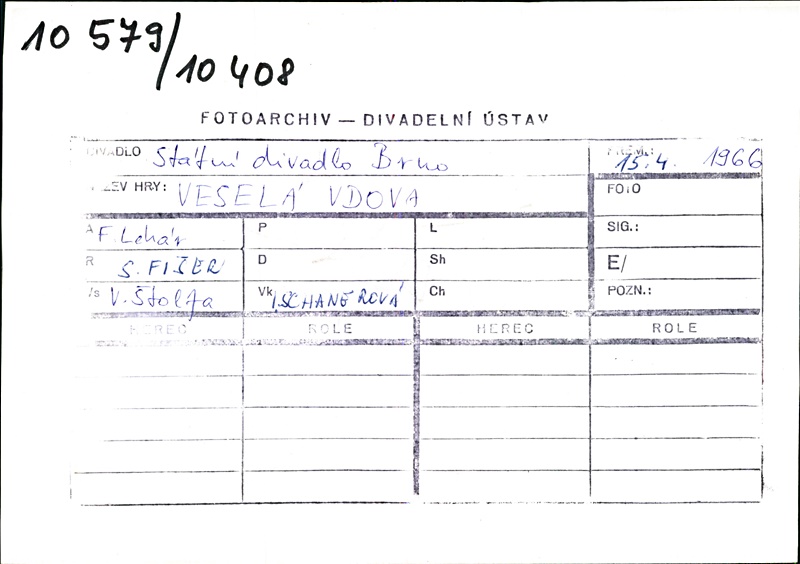 10 579/10 408
FOTOARCHIV — DIVADELNÍ ÚSTAV
DIVADLO Státní divadlo Brno PREM.: 15.4. 1966
NÁZEV HRY: VESELÁ VDOVA FOTO
A F. Lehár P L SIG.:
R S. FIŠER D Sh E/
/s V. Štolfa Vk I. SCHANEROVÁ Ch POZN.:
HEREC ROLE HEREC ROLE